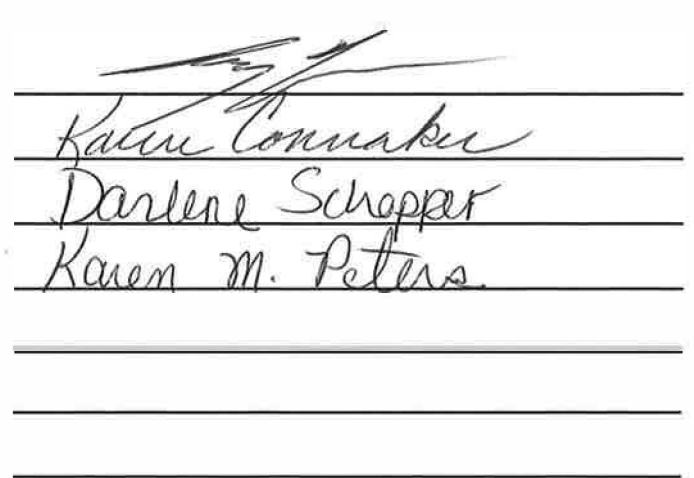 Karen Connaker
Darlene Schepper
Karen M. Peters